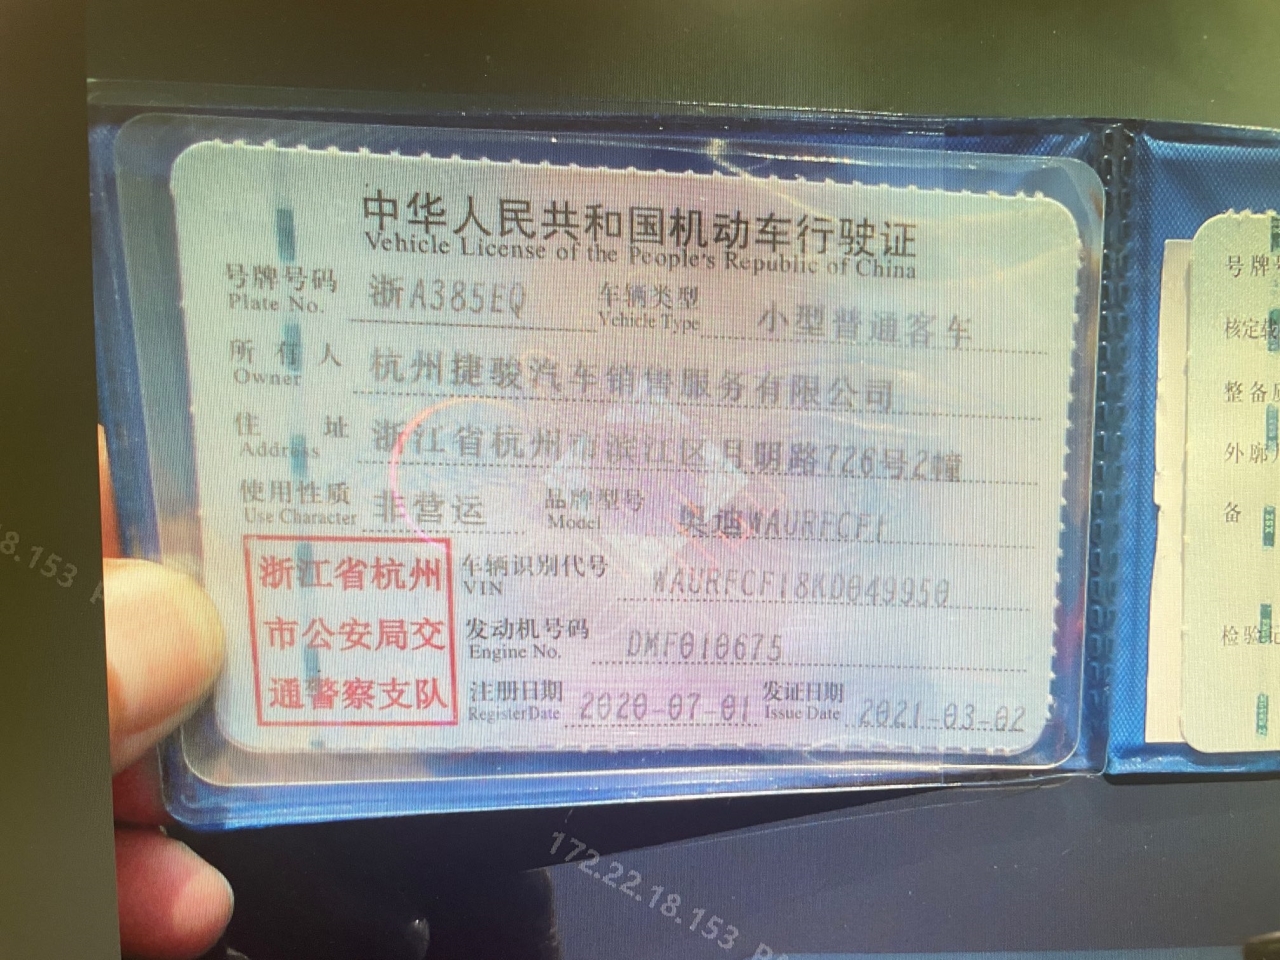 中华人民共和国机动车行驶证
Vehicle License of the People's Republic of China
号牌号码 浙A385EQ 车辆类型 小型普通客车
Plate No. Vehicle Type
所有人 杭州捷骏汽车销售服务有限公司
Owner
住址 浙江省杭州市滨江区月明路726号2幢
Address
使用性质 非营运 品牌型号 奥迪WAURFCF1
Use Character Model
浙江省杭州
市公安局交
通警察支队
车辆识别代号 WAURFCF18KD049950
VIN
发动机号码 DMF010675
Engine No.
注册日期 2020-07-01 发证日期 2021-03-02
Register Date Issue Date
号牌
核定载
整备质
外廓
备
检验记
8.153
172.22.18.153